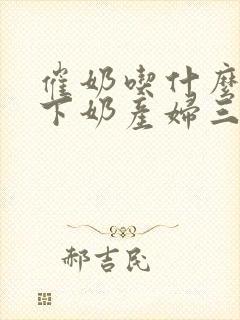 催奶喫什麼
下奶產婦三
郝吉民